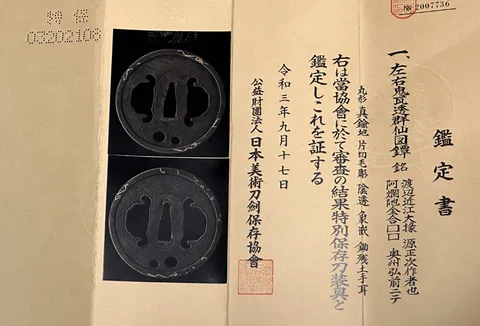 №2007736
鑑定書
一、左右鬼瓦透群仙図鐔 銘
渡辺近江大掾 源正次作者也
阿爛陁金合□□ 奥州弘前ニテ
丸形 真鍮地 片切毛彫 陰透 象嵌 鋤残土手耳
右は當協會に於て審査の結果特別保存刀装具と
鑑定しこれを証する
令和三年九月十七日
公益財團法人 日本美術刀劍保存協會
特保
03202106